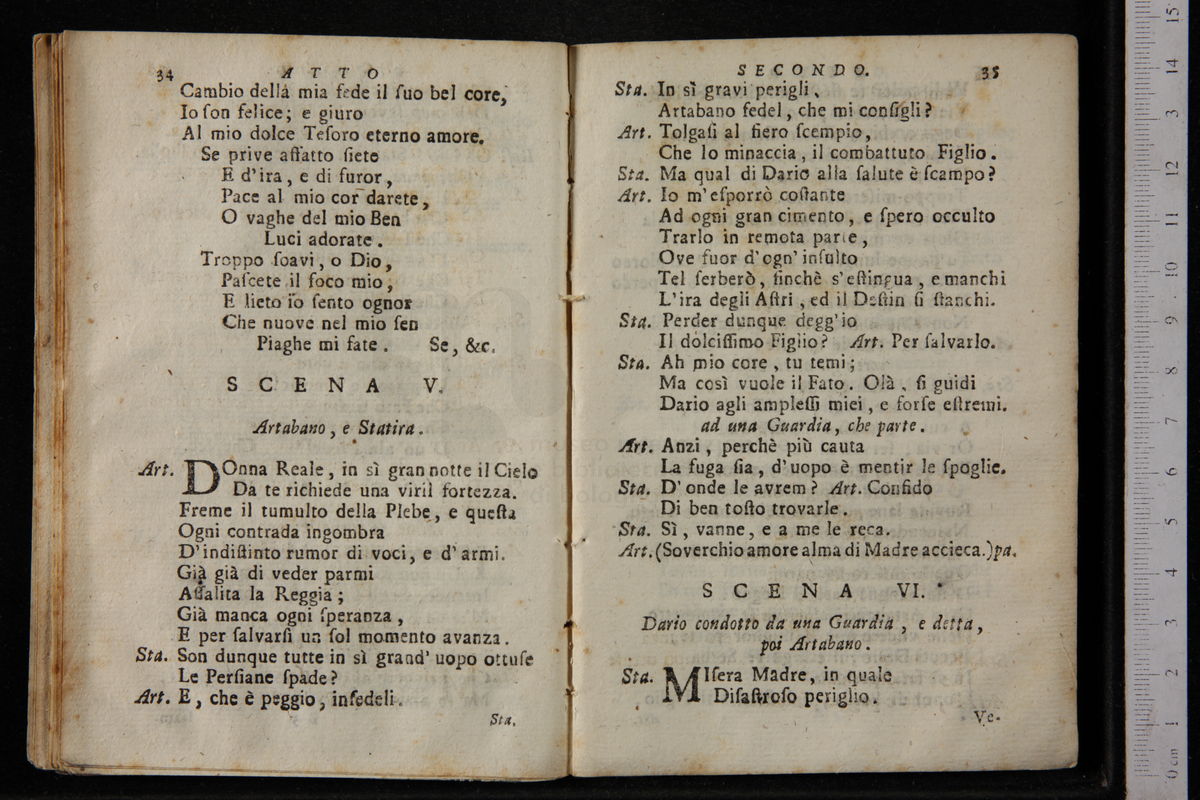 34 ATTO
Cambio della mia fede il ſuo bel core,
Io ſon felice; e giuro
Al mio dolce Teſoro eterno amore.
Se prive affatto ſiete
E d'ira, e di furor,
Pace al mio cor darete,
O vaghe del mio Ben
Luci adorate.
Troppo ſoavi, o Dio,
Paſcete il foco mio,
E lieto io ſento ognor
Che nuove nel mio ſen
Piaghe mi fate. Se, &c.
SCENA V.
Artabano, e Statira.
Art. DOnna Reale, in sì gran notte il Cielo
Da te richiede una viril fortezza.
Freme il tumulto della Plebe, e queſta
Ogni contrada ingombra
D'indiſtinto rumor di voci, e d'armi.
Già già di veder parmi
Aſſalita la Reggia;
Già manca ogni ſperanza,
E per ſalvarſi un ſol momento avanza.
Sta. Son dunque tutte in sì grand' uopo ottuſe
Le Perſiane ſpade?
Art. E, che è peggio, infedeli.
Sta.
SECONDO. 35
Sta. In sì gravi perigli,
Artabano fedel, che mi conſigli?
Art. Tolgaſi al fiero ſcempio,
Che lo minaccia, il combattuto Figlio.
Sta. Ma qual di Dario alla ſalute è ſcampo?
Art. Io m'eſporrò coſtante
Ad ogni gran cimento, e ſpero occulto
Trarlo in remota parte,
Ove fuor d'ogn' inſulto
Tel ſerberò, finchè s'eſtingua, e manchi
L'ira degli Aſtri, ed il Deſtin ſi ſtanchi.
Sta. Perder dunque degg'io
Il dolciſſimo Figlio? Art. Per ſalvarlo.
Sta. Ah mio core, tu temi;
Ma così vuole il Fato. Olà, ſi guidi
Dario agli ampleſſi miei, e forſe eſtremi.
ad una Guardia, che parte.
Art. Anzi, perchè più cauta
La fuga ſia, d'uopo è mentir le ſpoglie.
Sta. D'onde le avrem? Art. Confido
Di ben toſto trovarle.
Sta. Sì, vanne, e a me le reca.
Art. (Soverchio amore alma di Madre accieca.) pa.
SCENA VI.
Dario condotto da una Guardia, e detta,
poi Artabano.
Sta. MIſera Madre, in quale
Diſaſtroſo periglio.
Ve-